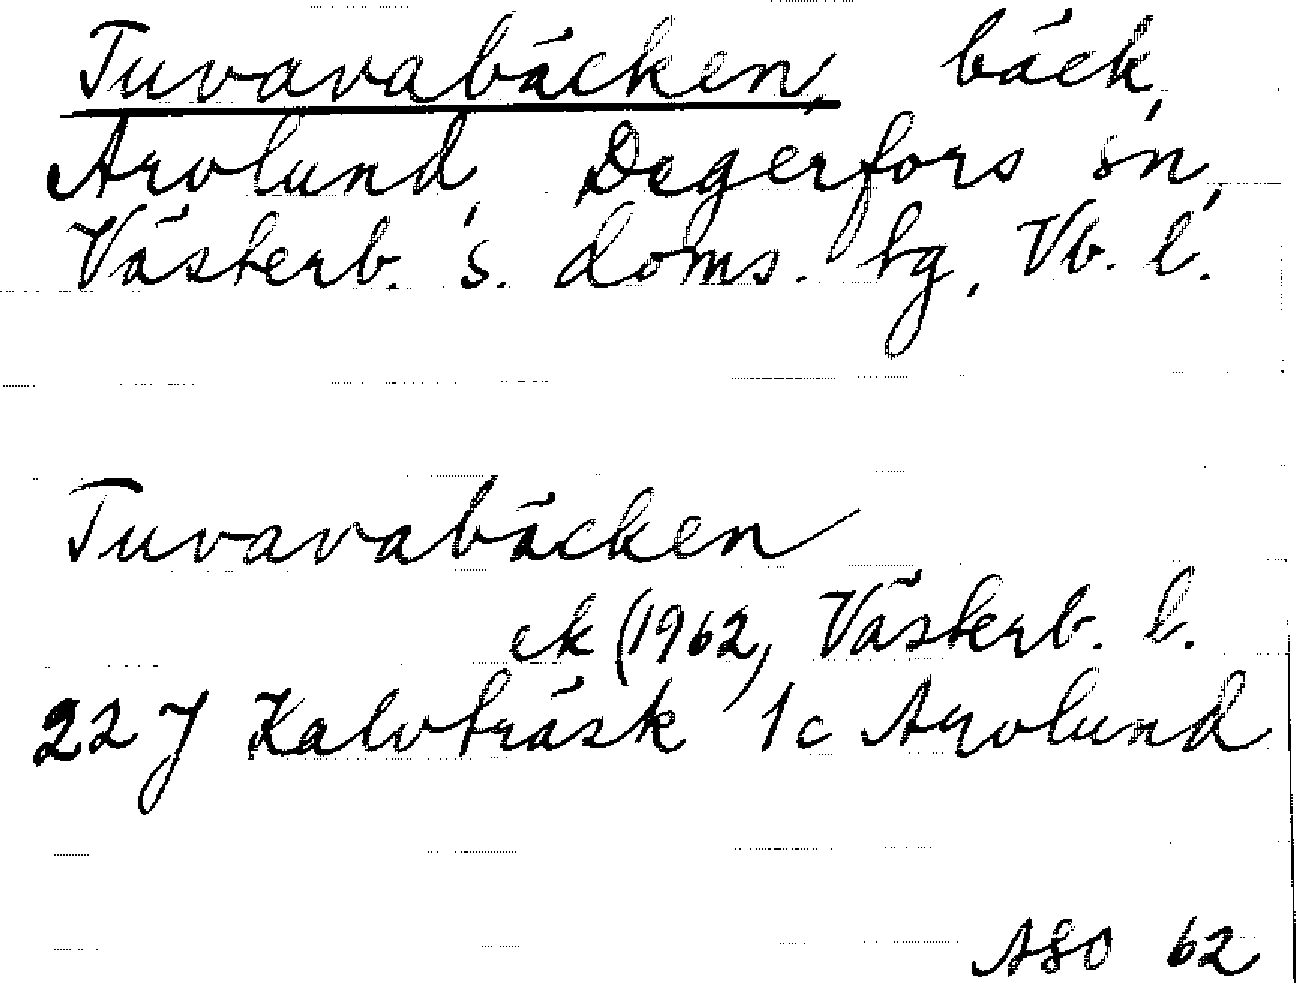 Tuvavabäcken, bäck,
Arvlund, Degerfors sn,
Västerb. s. doms. tg, Vb. l.
Tuvavabäcken
ek (1962, Västerb. l.
22 J Kalvträsk 1c Arvlund
ASO 62